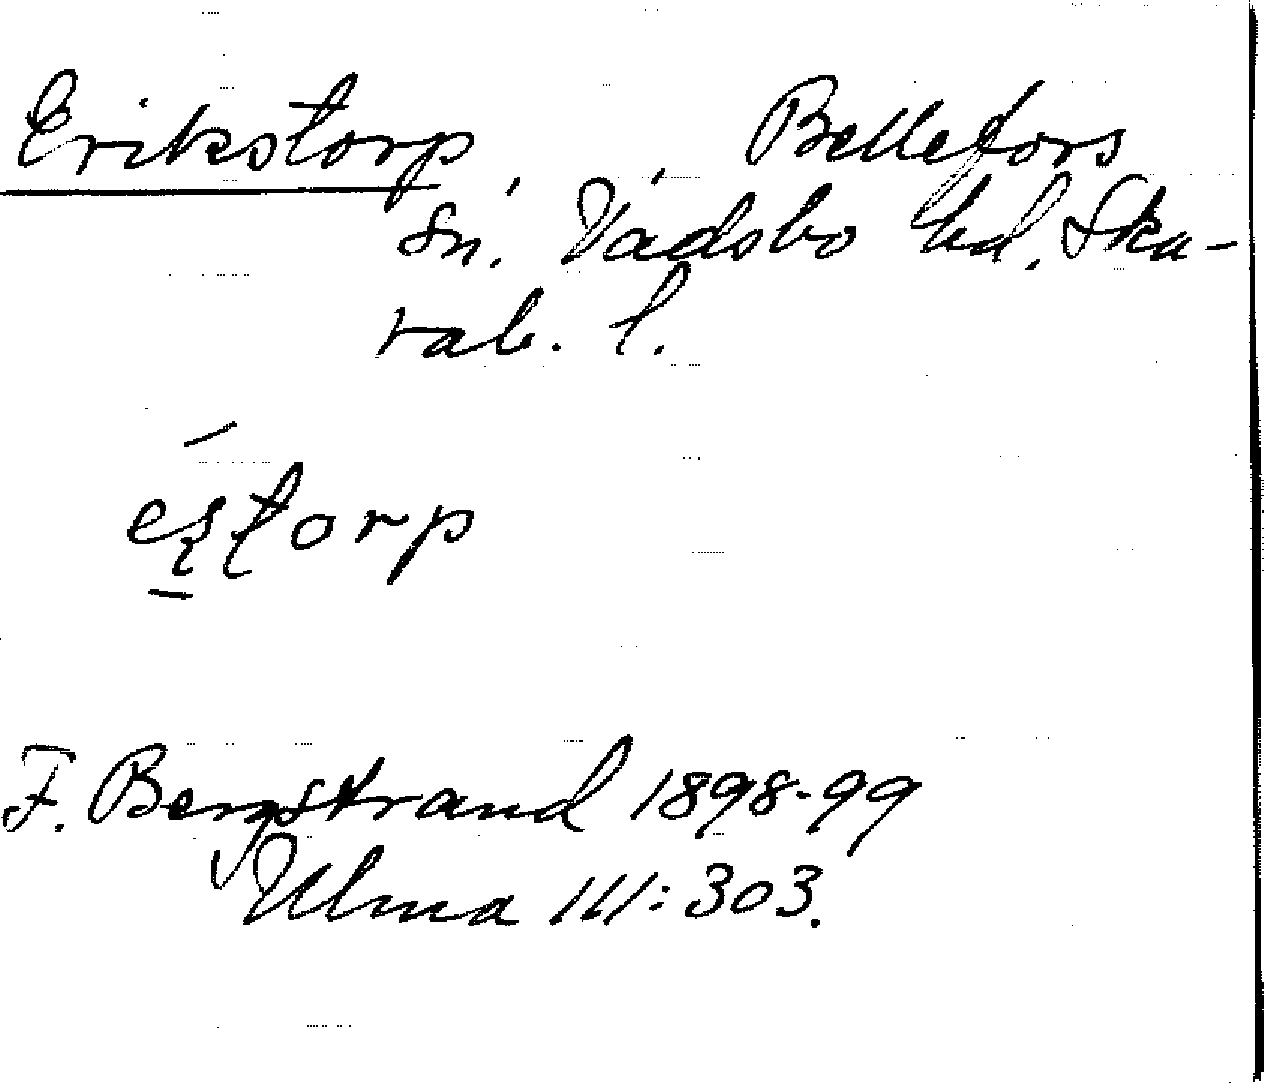 Erikstorp Bellefors
sn. Vadsbo hd. Ska-
rab. l.
estorp
F. Bergstrand 1898-99
Ulma 111:303.